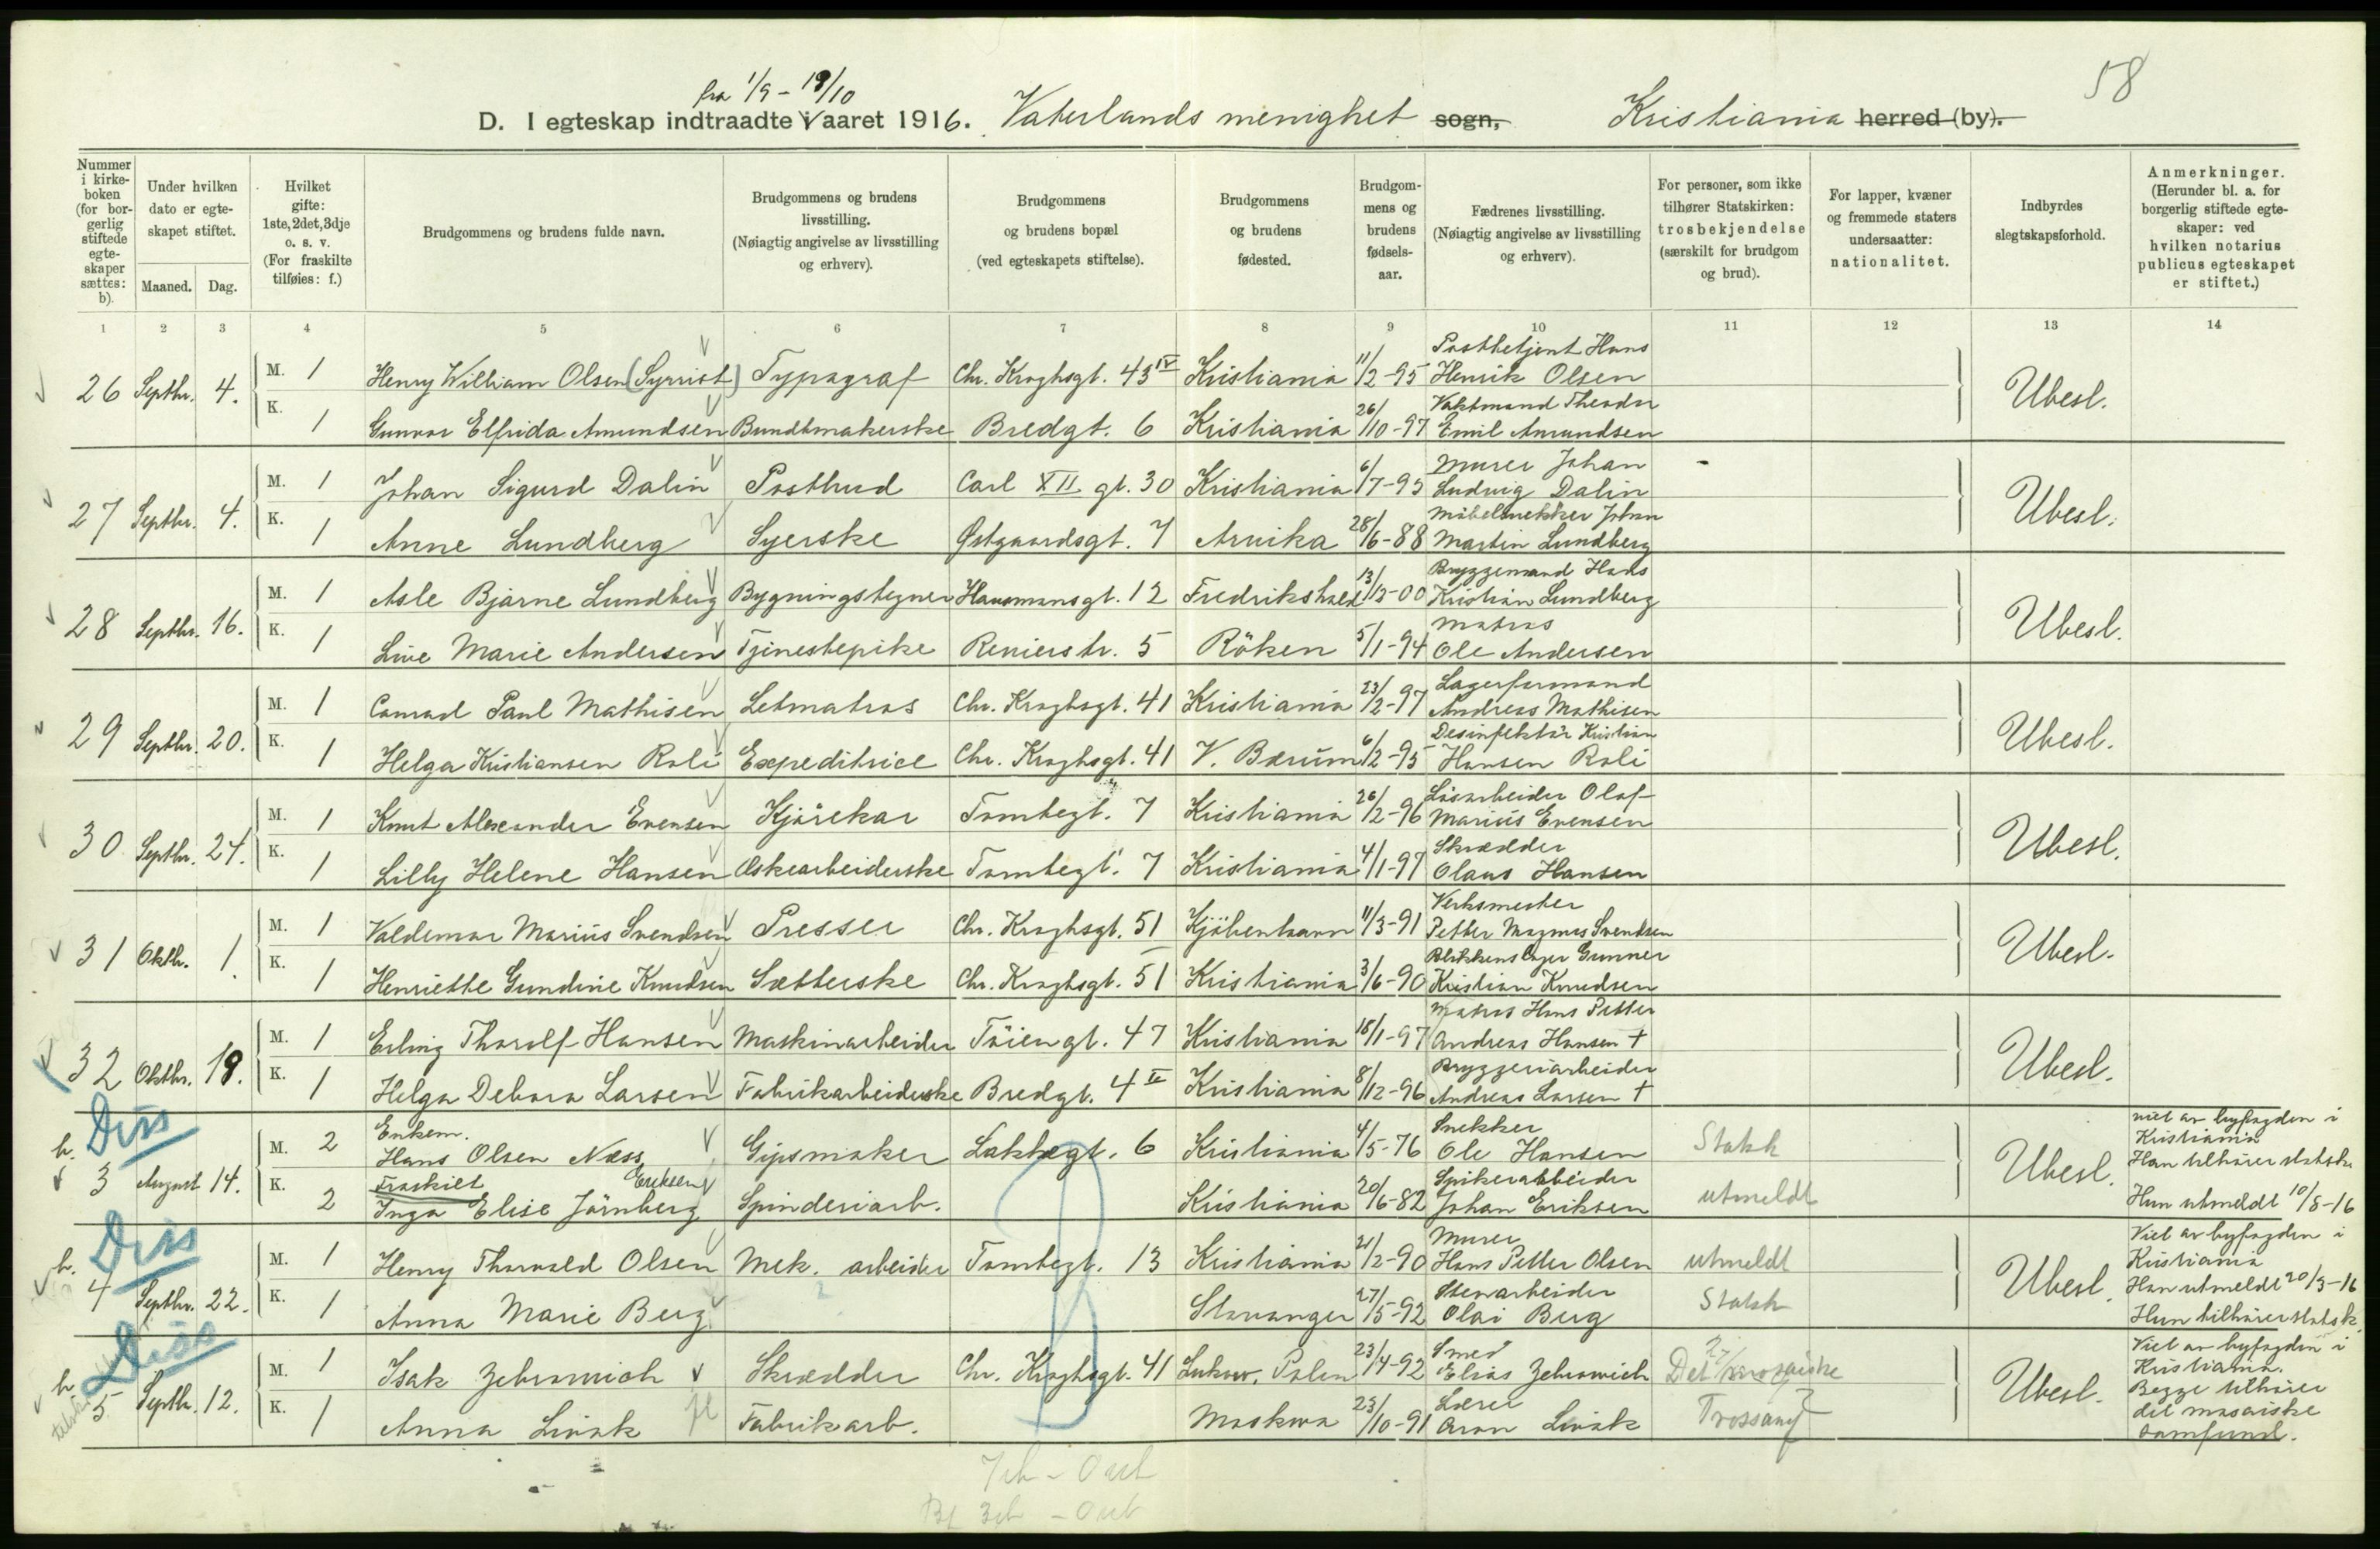 58
fra 1/9 - 19/10
D. I egteskap indtraadte i aaret 1916. Vaterlands menighet sogn, Kristiania herred (by).
Nummer i kirkeboken (for borgerlig stiftede egteskaper sættes: b).
Under hvilken dato er egteskapet stiftet.
Maaned. Dag.
Hvilket gifte: 1ste, 2det, 3dje o. s. v. (For fraskilte tilføies: f.)
Brudgommens og brudens fulde navn.
Brudgommens og brudens livsstilling. (Nøiagtig angivelse av livsstilling og erhverv).
Brudgommens og brudens bopæl (ved egteskapets stiftelse).
Brudgommens og brudens fødested.
Brudgommens og brudens fødselsaar.
Fædrenes livsstilling. (Nøiagtig angivelse av livsstilling og erhverv).
For personer, som ikke tilhører Statskirken: trosbekjendelse (særskilt for brudgom og brud).
For lapper, kvæner og fremmede staters undersaatter: nationalitet.
Indbyrdes slegtskapsforhold.
Anmerkninger. (Herunder bl. a. for borgerlig stiftede egteskaper: ved hvilken notarius publicus egteskapet er stiftet.)
1 2 3 4 5 6 7 8 9 10 11 12 13 14
26 Septbr. 4. M. 1 Henry William Olsen (Syrrist) Typograf Chr. Kroghsgt. 43 IV Kristiania 11/2-95 Postbetjent Hans Henrik Olsen Ubesl.
K. 1 Gunvor Elfrida Amundsen Bundtmakerske Bredgt. 6 Kristiania 26/10-97 Vaktmand Theodor Emil Amundsen
27 Septbr. 4. M. 1 Johan Sigurd Dalin Postbud Carl XII gt. 30 Kristiania 6/7-95 Murer Johan Ludvig Dalin Ubesl.
K. 1 Anne Lundberg Syerske Østgaardsgt. 7 Arvika 28/6-88 Möbelsnekker Johan Martin Lundberg
28 Septbr. 16. M. 1 Asle Bjarne Lundberg Bygningstegner Hausmansgt. 12 Fredrikshald 13/3-00 Bryggemand Hans Kristian Lundberg Ubesl.
K. 1 Live Marie Andersen Tjenestepike Reniers str. 5 Röken 5/1-94 Matros Ole Andersen
29 Septbr. 20. M. 1 Conrad Paul Mathisen Letmatros Chr. Kroghsgt. 41 Kristiania 23/2-97 Lagerformand Andreas Mathisen Ubesl.
K. 1 Helga Kristiansen Roli Expeditrice Chr. Kroghsgt. 41 V. Bærum 6/2-95 Desinfektör Kristian Hansen Roli
30 Septbr. 24. M. 1 Knut Alexander Evensen Kjörekar Tomtegt. 7 Kristiania 26/2-96 Lösarbeider Olaf Marius Evensen Ubesl.
K. 1 Lilly Helene Hansen Æskearbeiderske Tomtegt. 7 Kristiania 4/1-97 Skrædder Olaus Hansen
31 Oktbr. 1. M. 1 Valdemar Marius Svendsen Presser Chr. Kroghsgt. 51 Kjöbenhavn 11/3-91 Verksmester Petter Magnus Svendsen Ubesl.
K. 1 Henriette Gundine Knudsen Sætterske Chr. Kroghsgt. 51 Kristiania 3/6-90 Blikkenslager Gunner Kristian Knudsen
32 Oktbr. 19. M. 1 Erling Thorolf Hansen Maskinarbeider Töiengt. 47 Kristiania 18/1-97 Matros Hans Petter Andreas Hansen † Ubesl.
K. 1 Helga Debora Larsen Fabrikarbeiderske Bredgt. 4 II Kristiania 8/12-96 Bryggeriarbeider Andreas Larsen †
Diss
b. 3 August 14. M. 2 Enkem. Hans Olsen Næss Gipsmaker Lakkegt. 6 Kristiania 4/5-76 Snekker Ole Hansen Statsk Ubesl. Viet av byfogden i Kristiania Han tilhører statsk.
K. 2 Fraskilt Inga Elise Järnberg Eriksen Spinderiarb. Kristiania 20/6-82 Spikerarbeider Johan Eriksen utmeldt Hun utmeldt 10/8-16
Diss
b. 4 Septbr. 22. M. 1 Henry Thorvald Olsen Mek. arbeider Tomtegt. 13 Kristiania 21/2-90 Murer Hans Petter Olsen utmeldt Ubesl. Viet av byfogden i Kristiania Han utmeldt 20/3-16
K. 1 Anna Marie Berg Stavanger 27/5-92 Stenarbeider Olai Berg Statsk Hun tilhører statsk.
Diss
b. 5 Septbr. 12. M. 1 Isak Zebramich Skrædder Chr. Kroghsgt. 41 Lukow, Polen 23/4-92 Smed Elias Zebrowich Det mosaiske Ubesl. Viet av byfogden i Kristiania. Begge tilhører det mosaiske samfund.
K. 1 Anna Livak Fabrikarb. Moskwa 23/10-91 Lærer Aron Livak Trossamf